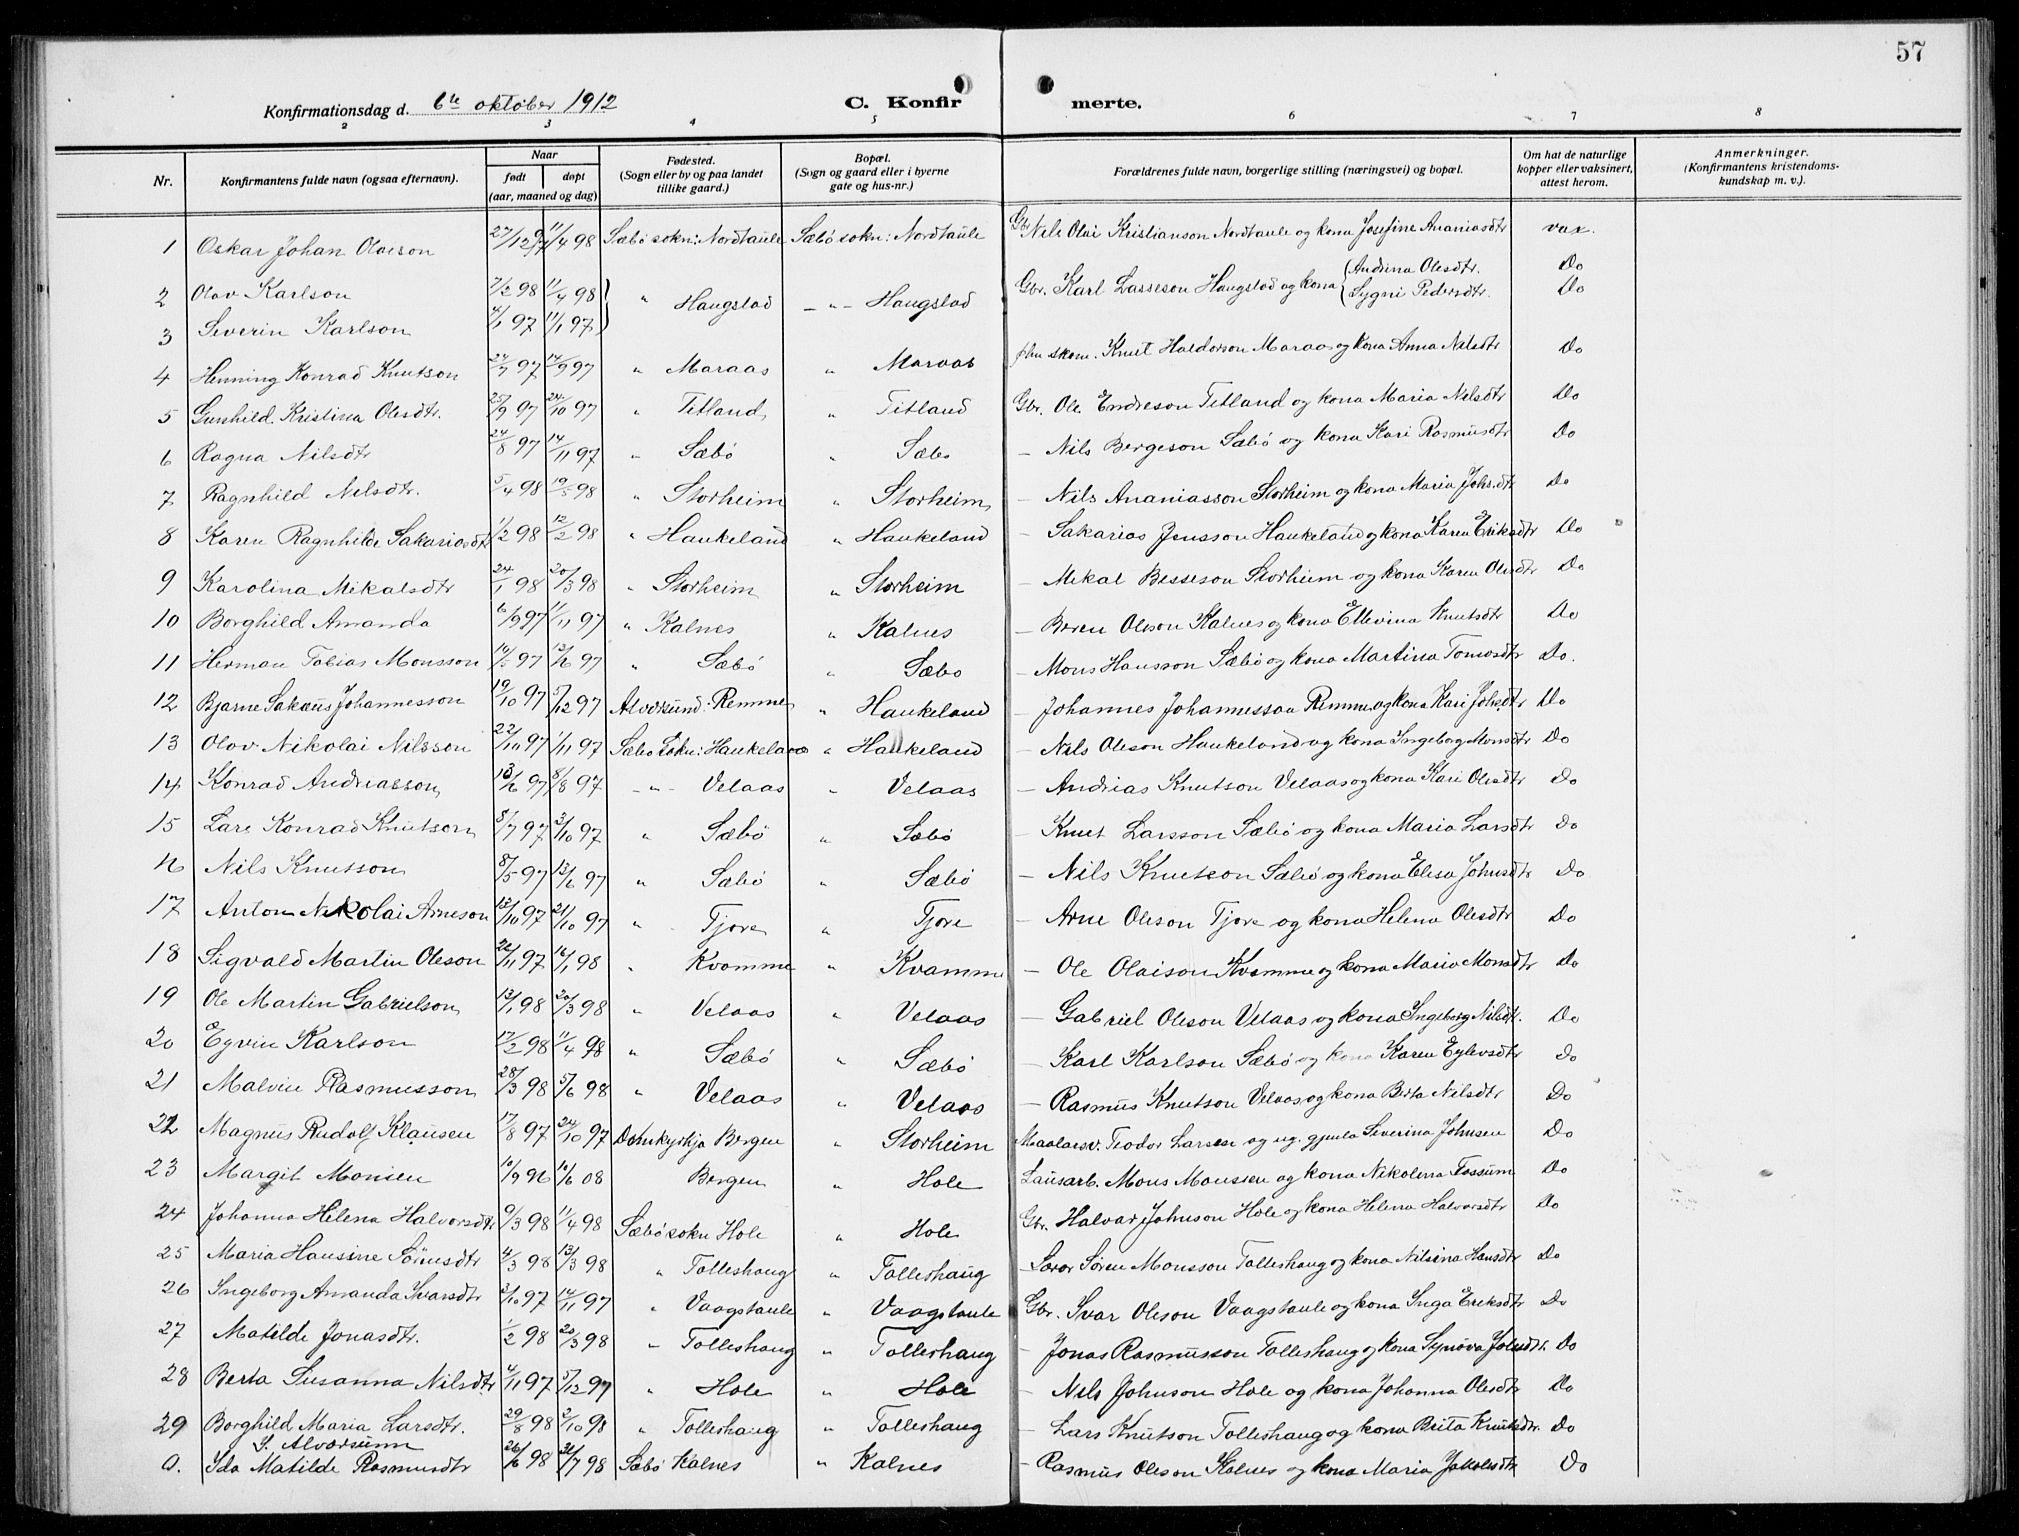 57
Konfirmationsdag d. 6te oktober 1912
C. Konfir merte.
2 3 4 5 6 7 8
Nr. Konfirmantens fulde navn (ogsaa efternavn). Naar født døpt (aar, maaned og dag) Fødested. (Sogn eller by og paa landet tillike gaard.) Bopæl. (Sogn og gaard eller i byerne gate og hus-nr.) Forældrenes fulde navn, borgerlige stilling (næringsvei) og bopæl. Om hat de naturlige kopper eller vaksinert, attest herom. Anmerkninger. (Konfirmantens kristendomskundskap m. v.).
1 Oskar Johan Olaison 27/12 97 11/4 98 Sæbø sokn: Nordtaule Sæbø sokn: Nordtaule Gbr. Nils Olai Kristianson Nordtaule og kona Josefine Ananiasdtr vax.
2 Olav Karlson 7/2 98 11/4 98 " Haugstad -"- Haugstad Gbr. Karl Lasseson Haugstad og kona Andrina Olesdtr. Do
3 Severin Karlson 4/1 97 11/1 97 Sygni Pedersdtr. Do
4 Henning Konrad Knutson 27/7 97 14/9 97 " Maraas " Maraas skom. Knut Haldorson Maraas og kona Anna Nilsdtr Do
5 Gunhild Kristina Olesdtr. 25/9 97 24/10 97 " Titland " Titland Gbr. Ole Endreson Titland og kona Maria Nilsdtr Do
6 Ragna Nilsdtr 24/8 97 14/11 97 " Sæbø " Sæbø - Nils Bergeson Sæbø og kona Kari Rasmusdtr Do
7 Ragnhild Nilsdtr. 5/4 98 19/5 98 " Storheim " Storheim - Nils Ananiasson Storheim og kona Maria Johs.dtr Do
8 Karen Ragnhilde Sakariasdtr 1/2 98 12/2 98 " Haukeland " Haukeland - Sakarias Jensson Haukeland og kona Karen Eriksdtr Do
9 Karolina Mikalsdtr 24/1 98 20/3 98 " Storheim " Storheim - Mikal Besseson Storheim og kona Karen Olesdtr Do
10 Borghild Amanda 6/9 97 11/11 97 " Kalnes " Kalnes - Beren Oleson Kalnes og kona Ellevina Knutsdtr Do
11 Herman Tobias Monsson 14/5 97 13/6 97 " Sæbø " Sæbø - Mons Hansson Sæbø og kona Martina Tomasdtr Do.
12 Bjarne Sakæus Johannesson 19/10 97 5/12 97 Alversund: Remme " Haukeland - Johannes Johannesson Remme og kona Kari Johs.dtr Do
13 Olov Nikolai Nilsson 22/10 97 1/11 97 Sæbø Sokn: Haukeland " Haukeland - Nils Oleson Haukeland og kona Ingeborg Monsdtr Do
14 Konrad Andreasson 13/6 97 8/8 97 -"- Velaas " Velaas - Andrias Knutson Velaas og kona Kari Olesdtr Do
15 Lars Konrad Knutson 8/7 97 3/10 97 " Sæbø " Sæbø - Knut Larsson Sæbø og kona Maria Larsdtr Do
16 Nils Knutsson 8/5 97 13/6 97 " Sæbø " Sæbø - Nils Knutson Sæbø og kona Elesa Johnsdtr Do
17 Anton Nikolai Arneson 13/10 97 21/10 97 " Tjore " Tjore - Arne Oleson Tjore og kona Helena Olesdtr Do
18 Sigvald Martin Oleson 26/11 97 16/1 98 " Kvamme " Kvamme - Ole Olaison Kvamme og kona Maria Monsdtr Do
19 Ole Martin Gabrielson 13/1 98 20/3 98 " Velaas " Velaas - Gabriel Oleson Velaas og kona Ingeborg Nilsdtr. Do
20 Eyvin Karlson 17/2 98 11/4 98 " Sæbø " Sæbø - Karl Karlson Sæbø og kona Karen Eylevsdtr Do
21 Malvin Rasmusson 28/3 98 5/6 98 " Velaas " Velaas - Rasmus Knutson Velaas og kona Berta Nilsdtr Do
22 Magnus Rudolf Klausen 17/8 97 24/10 97 Domkyrkja Bergen " Storheim Maalarsv. Teodor Larsen og ug. gjenta Severina Johnsen Do
23 Margit Monsen 10/9 96 10/6 08 Bergen " Hole Lausarb. Mons Monssen og kona Nikolina Fossum Do
24 Johanna Helena Halvorsdtr 9/3 98 11/4 98 Sæbø sokn Hole " Hole Gbr. Halvar Johnson Hole og kona Helena Halvorsdtr Do
25 Maria Hansine Sörensdtr 4/3 98 13/3 98 " Tolleshaug " Tolleshaug - Sören Monsson Tolleshaug og kona Nilsina Hansdtr Do
26 Ingeborg Amanda Ivarsdtr 3/10 97 14/11 97 " Vaagstaule " Vaagstaule Gbr. Ivar Oleson Vaagstaule og kona Inga Eriksdtr Do
27 Matilde Jonasdtr. 1/2 98 20/3 98 " Tolleshaug " Tolleshaug - Jonas Rasmusson Tolleshaug og kona Synøva Johsdtr. Do
28 Berta Susanna Nilsdtr 4/11 97 5/12 97 " Hole " Hole - Nils Johnson Hole og kona Johanna Olesdtr Do
29 Borghild Maria Larsdtr. 29/8 98 2/10 98 " Tolleshaug " Tolleshaug - Lars Knutson Tolleshaug og kona Brita Knutsdtr. Do
I. Alversunn
a. Ida Matilde Rasmusdtr 26/6 98 31/7 98 Sæbø Kalnes " Kalnes - Rasmus Oleson Kalnes og kona Maria Jakobsdtr Do